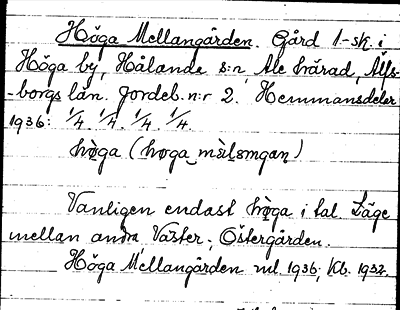 Höga Mellangården. Gård 1-sk. i
Höga by, Hålanda s:n, Ale härad, Älfs-
-borgs län. Jordeb. n:r 2. Hemmansdelar
1936: 1/4. 1/4. 1/4. 1/4.
hǫ̀ga (hǫga mæ̀lǝmgaṇ)
Vanligen endast hǫ̀ga i tal. Läge
mellan andra Väster- Östergården.
Höga Mellangården ml. 1936; Kb. 1932.